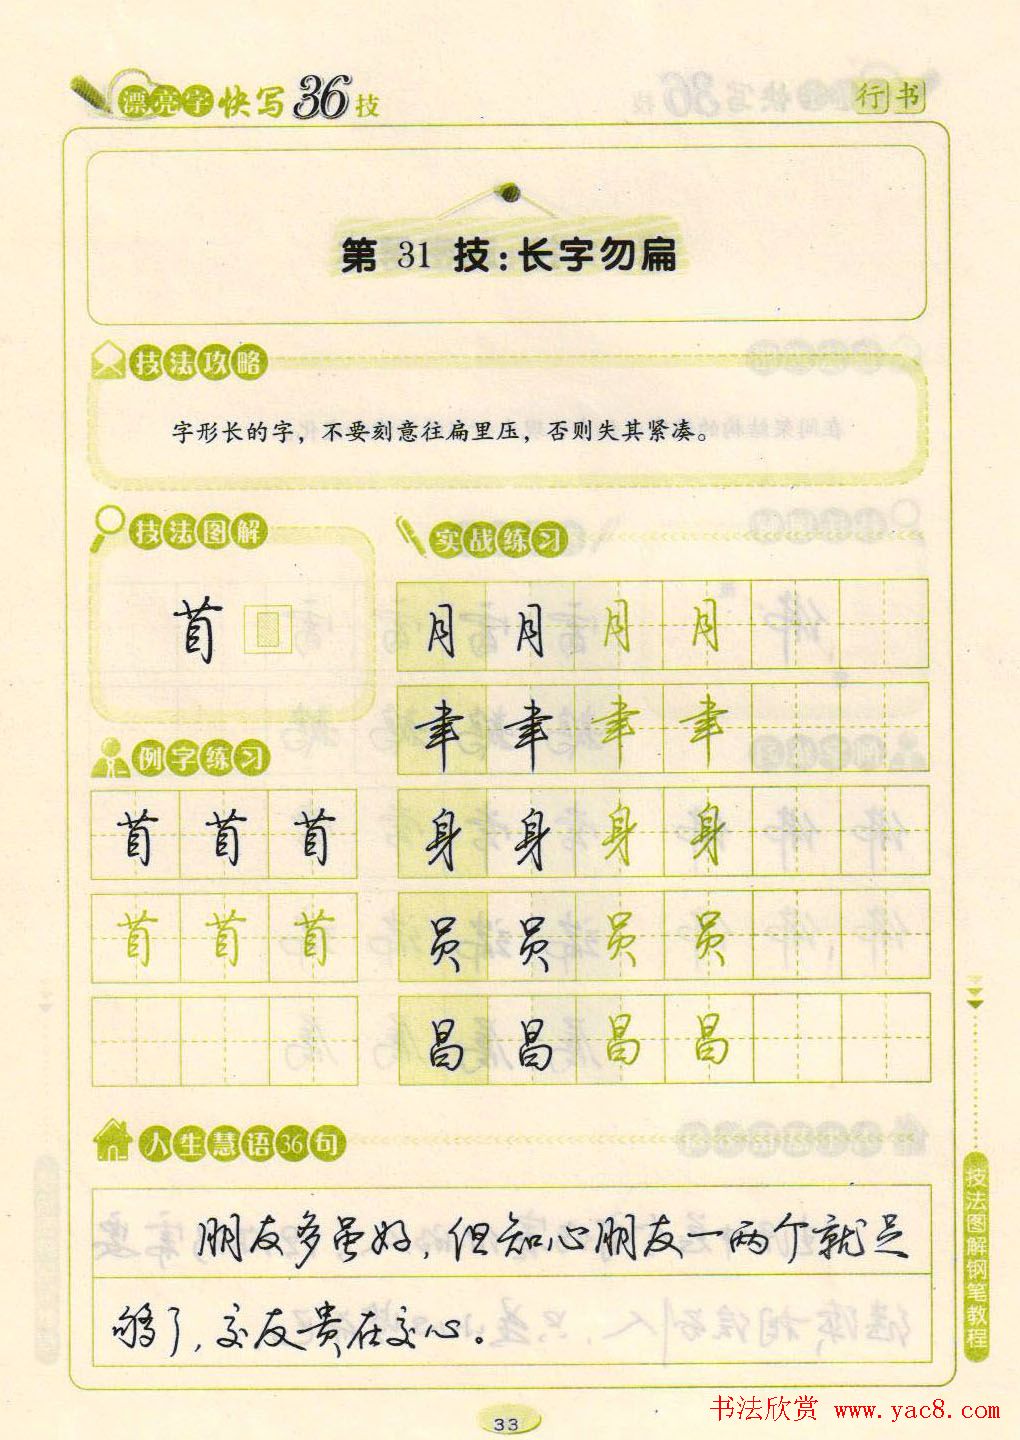 漂亮字快写36技
行书
第 31 技：长字勿扁
技法攻略
字形长的字，不要刻意往扁里压，否则失其紧凑。
技法图解
首
例字练习
首 首 首
首 首 首
实战练习
月 月 月 月
聿 聿 聿 聿
身 身 身 身
员 员 员 员
昌 昌 昌 昌
人生慧语36句
朋友多虽好，但知心朋友一两个就足
够了，交友贵在交心。
技法图解钢笔教程
33
书法欣赏 www.yac8.com